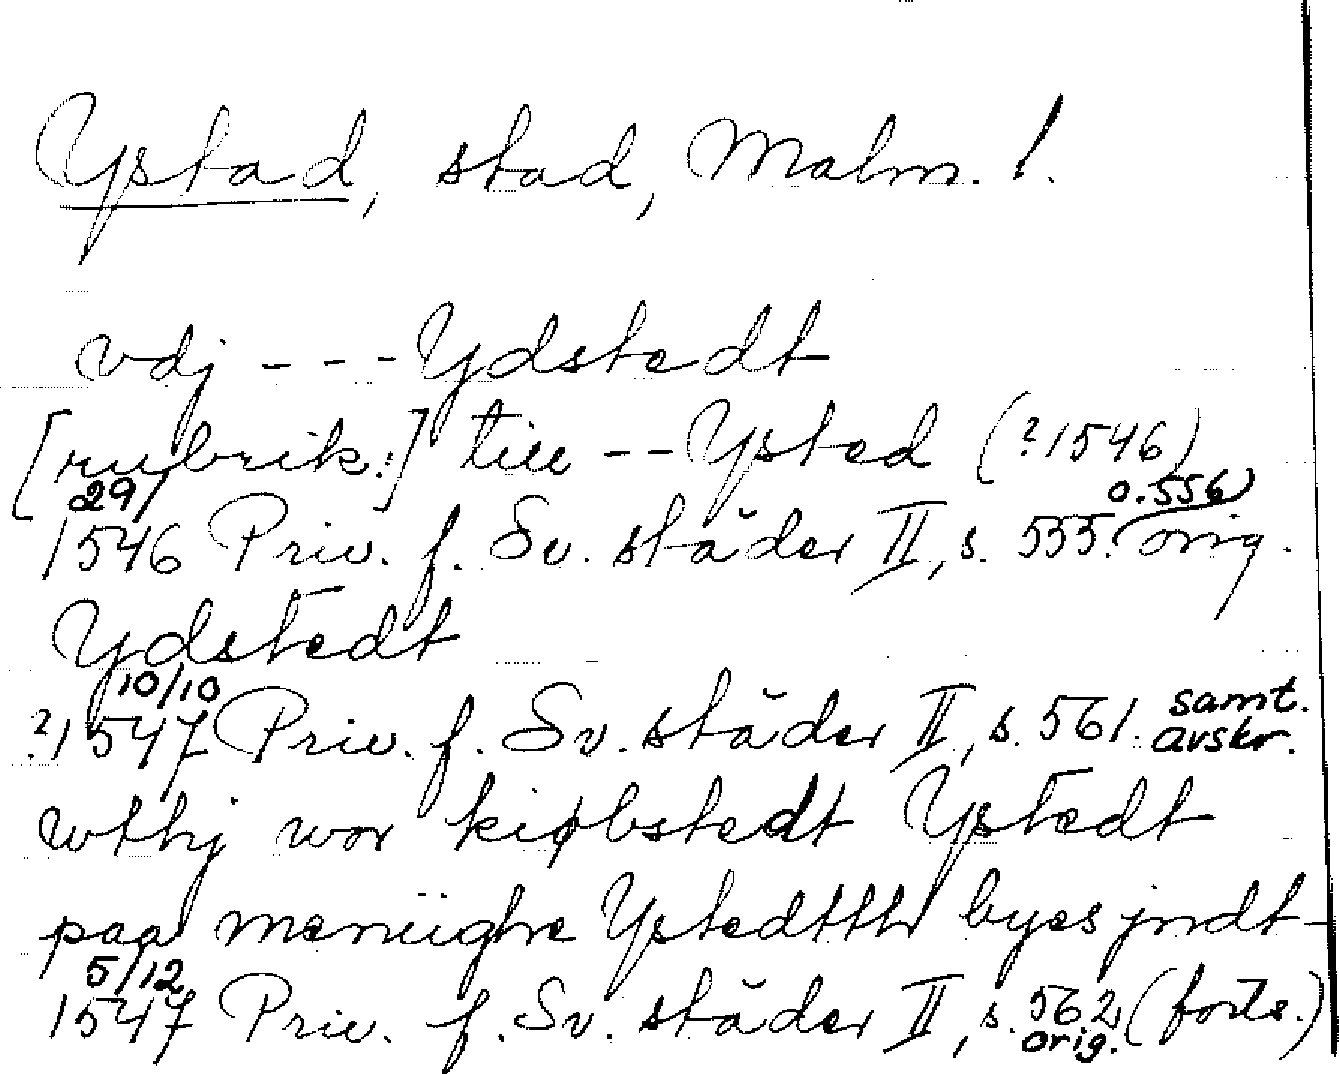 Ystad, stad, Malm. l.
vdj --- Ydstedt
[rubrik:] till -- Ysted (?1546)
29/ o. 556)
1546 Priv. f. Sv. städer II, s. 555. orig.
Ydstedt
10/10
?1547 Priv. f. Sv. städer II, s. 561. samt. avskr.
wthj wor kiøbstedt Ystedt
paa meniighe Ystedtth byes jndt-
5/12
1547 Priv. f. Sv. städer II, s. 562 (forts.)
orig.